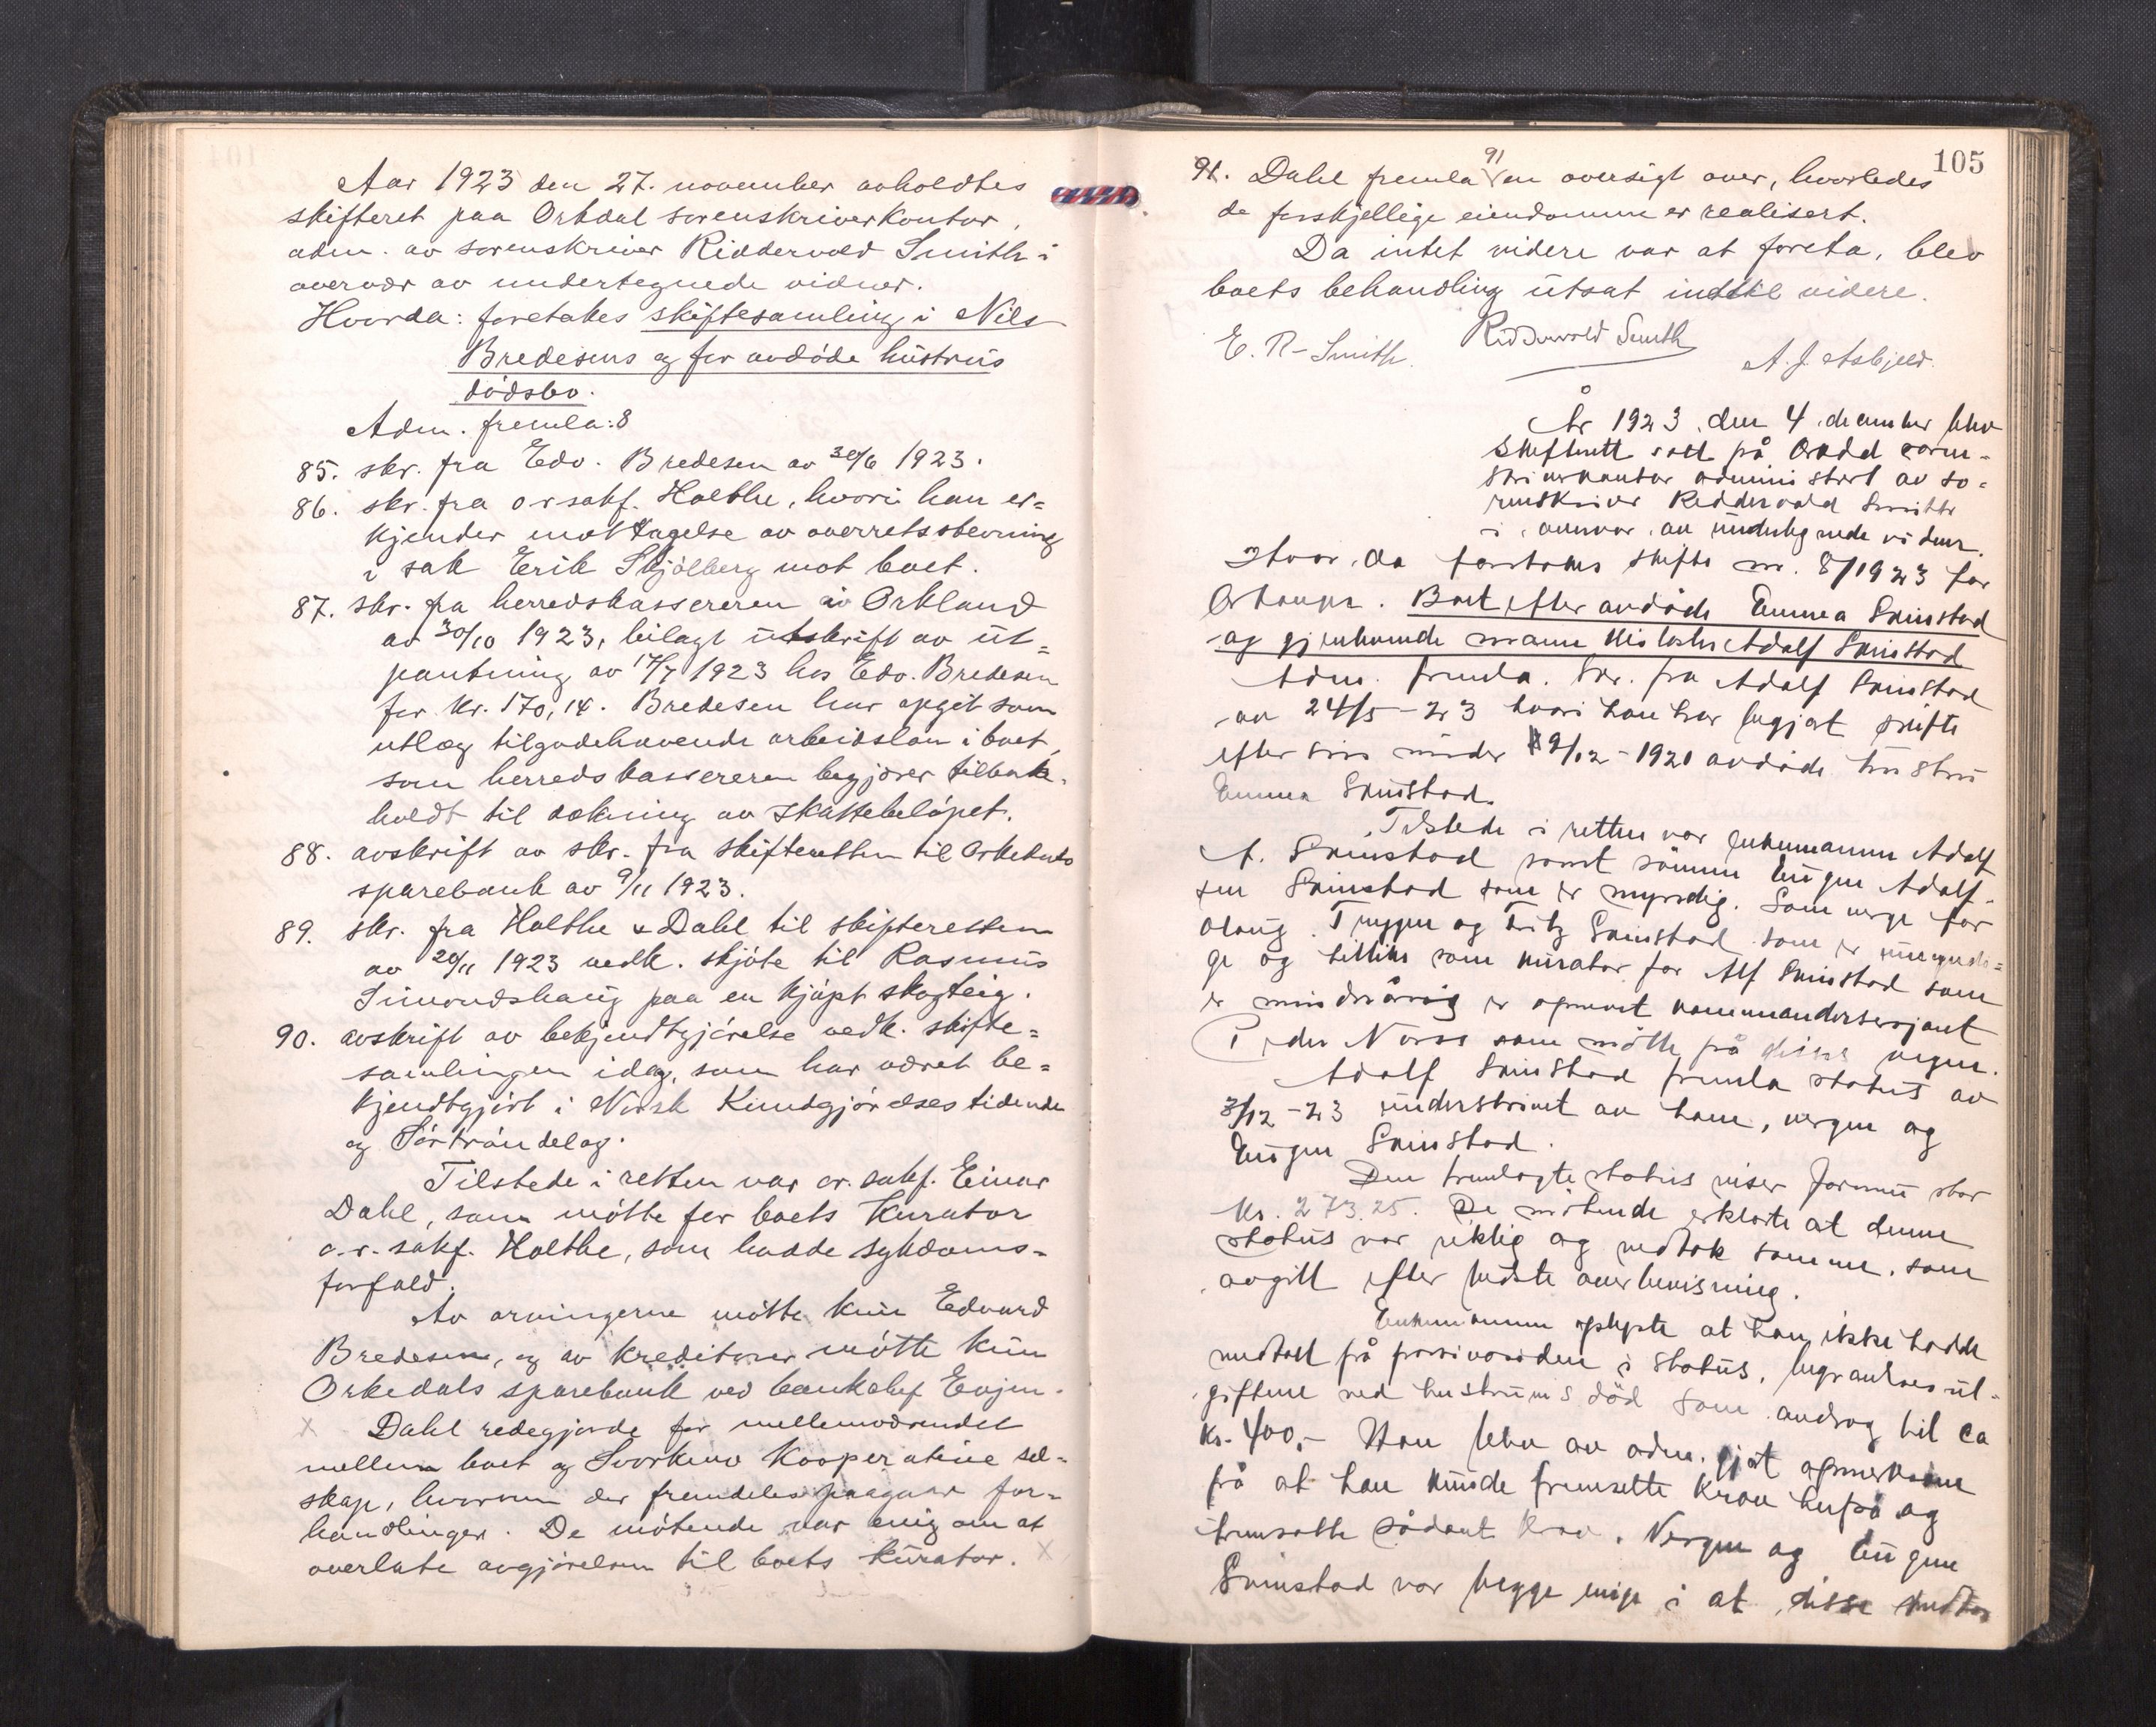 Aar 1923 den 27. november avholdtes
skifteret paa Orkdal sorenskriverkontor,
adm. av sorenskriver Riddervold Smith i
overvær av undertegnede vidner.
Hvorda: foretokes skiftesamling i Nils
Bredesens og før avdøde hustrus
dødsbo.
Adm. fremla: 8
85. skr. fra Edv. Bredesen av 30/6 1923.
86. skr. fra o r sakf. Holthe, hvori han er=
kjender mottagelse av overretsstevning
i sak Erik Skjölberg mot boet.
87. skr. fra herredskassereren i Orkland
av 30/10 1923, bilagt utskrift av ut=
pantning av 17/7 1923 hos Edv. Bredesen
for kr. 170,14. Bredesen har opgit som
utlæg tilgodehavende arbeidsløn i boet,
som herredskassereren begjærer tilbake-
holdt til dækning av skattebeløpet.
88. avskrift av skr. fra skifteretten til Orkedals
sparebank av 9/11 1923.
89. skr. fra Holthe & Dahl til skifteretten
av 20/11 1923 vedk. skjøte til Rasmus
Simondshaug paa en kjøpt skogteig.
90. avskrift av bekjendtgjørelse vedk. skifte=
samlingen idag, som har været be=
kjendtgjort i Norsk Kundgjørelsestidende
og Sørtrøndelag.
Tilstede i retten var or. sakf. Einar
Dahl, som møtte for boets kurator
o.r. sakf. Holthe, som hadde sykdoms-
forfald.
Av arvingerne møtte kun Edvard
Bredesen, og av kreditorer møtte kun
Orkedals sparebank ved bankchef Evjen.
X Dahl redegjorde for mellemværendet
mellem boet og Svorkmo Kooperative sel-
skap, hvorom der fremdeles paagaar for-
handlinger. De møtende var enig om at
overlate avgjørelsen til boets kurator. X
105
91
91. Dahl fremla en oversigt over, hvorledes
de forskjellige eiendomme er realisert.
Da intet videre var at foreta, blev
boets behandling utsat indtil videre.
E. R. Smith. Riddervold Smith A. J. Asbjell.
År 1923 den 4. december blev
skifterett satt på Orkdal soren-
skriverkontor administert av so-
renskriver Riddervold Smith
i overvær av undertegnede vidner.
Hvor da foretokes skifte nr. 8/1923 for
Orkanger. Boet efter avdøde Emma Grinstad
og gjenlevende mann Adolf Grinstad
Adm. fremla. Skr. fra Adolf Grinstad
av 24/5-23 hvori han har begjært skifte
efter sin under 9/12-1920 avdøde hustru
Emma Grinstad.
Tilstede i retten var enkemannen Adolf
A. Grinstad samt sønnen Eugen Adolf-
sen Grinstad som er myndig. Som verge for
Olaug, Trygve og Fritz Grinstad som er umyndi=
ge og tillike som kurator for Alf Grinstad som
er mindreårig er opnevnt kommandersersjant
Peder Norss som møtte på disses vegne.
Adolf Grinstad fremla status av
3/12-23 underskrevet av ham, vergen og
Eugen Grinstad.
Den fremlagte status viser formue stor
kr. 273.25. De møtende erklærte at denne
status var riktig og vedtok samme, som
avgitt efter bedste overbevisning.
Enkemannen oplyste at han ikke hadde
medtatt på passivasiden i status, begravelsesut-
giftene ved hustruens död som androg til ca
kr. 400,- Han blev av adm. gjort opmerksom
på at han kunde fremsette krav herpå og
fremsatte sådant krav. Vergen og Eugen
Grinstad var begge enige i at disse